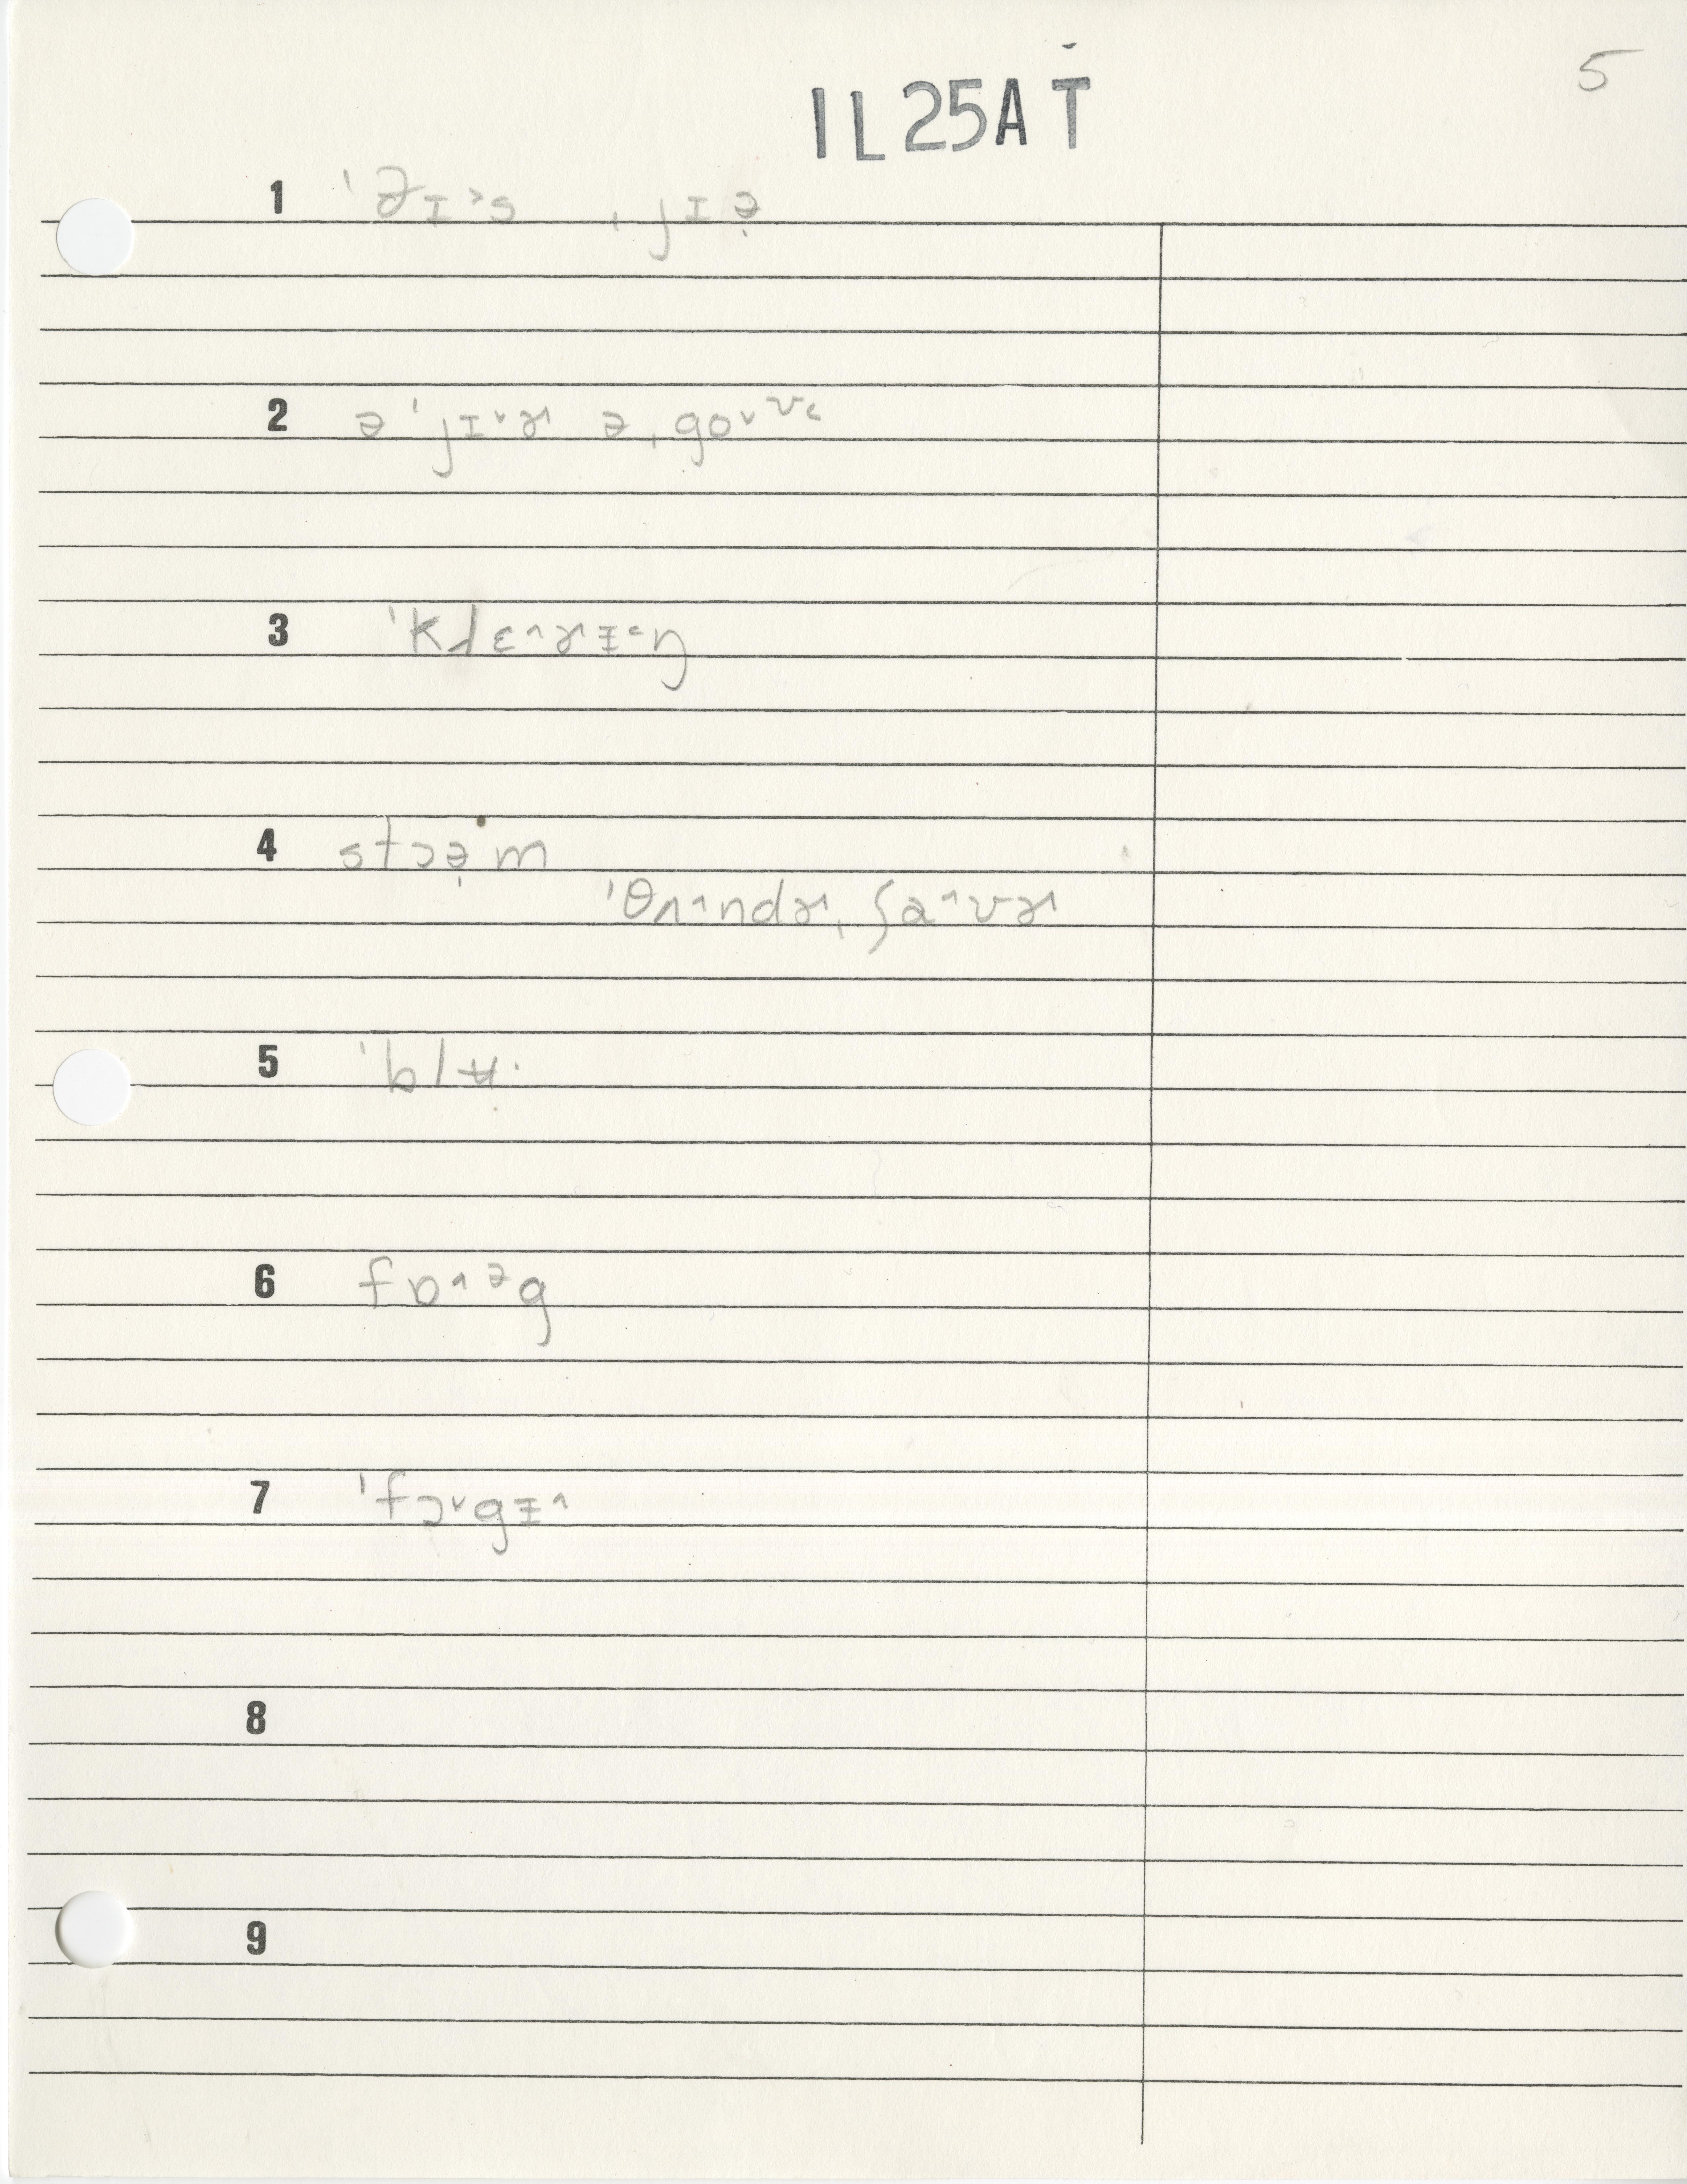 5
IL25AT
1 ˈðɪ˃s ˌjɪə̯
2 ə ˈjɪ˅ɚ ə ˌgo˅ʊ˂
3 ˈklɛ˄ɚɪ˃ŋ
4 stɔə̯m
ˈθʌ˄ndɚ ˌʃa˄ʊɚ
5 ˈblʉ
6 fɒ˄ᵊg
7 ˈfɔ˅gɪ˄
8
9